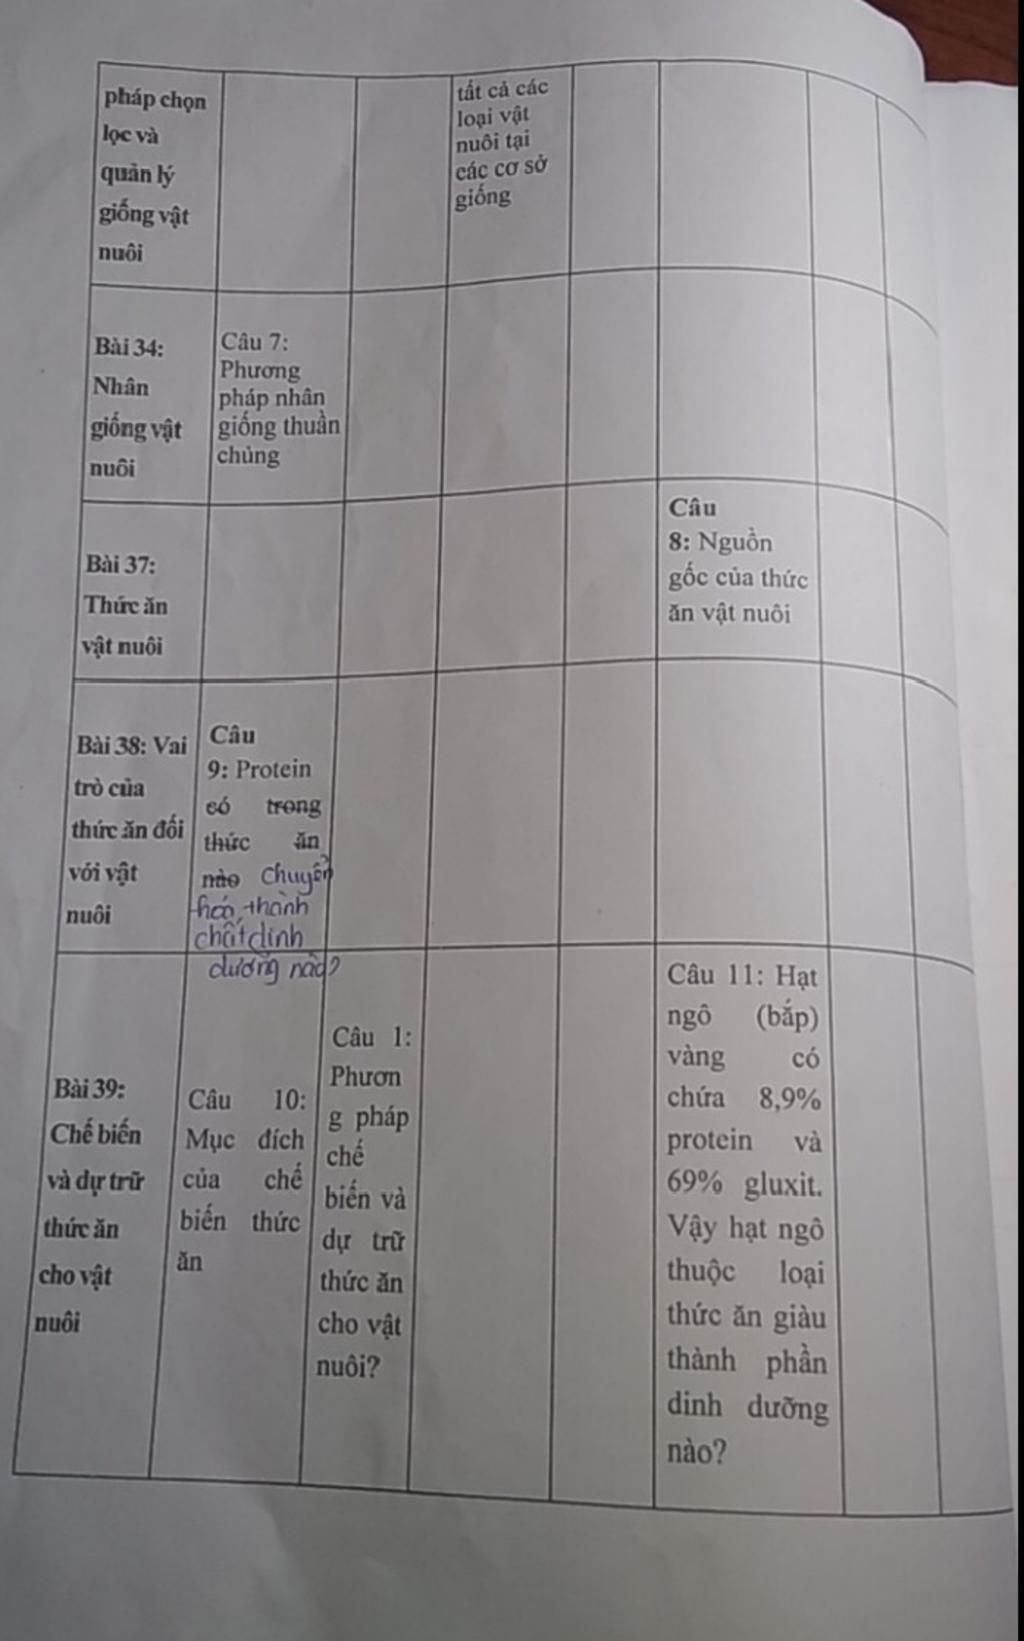 pháp chọn
lọc và
quản lý
giống vật
nuôi
tất cả các
loại vật
nuôi tại
các cơ sở
giống
Bài 34:
Nhân
giống vật
nuôi
Câu 7:
Phương
pháp nhân
giống thuần
chủng
Bài 37:
Thức ăn
vật nuôi
Câu
8: Nguồn
gốc của thức
ăn vật nuôi
Bài 38: Vai
trò của
thức ăn đối
với vật
nuôi
Câu
9: Protein
có trong
thức ăn
nào chuyển
hoá thành
chất dinh
dưỡng nào?
Bài 39:
Chế biến
và dự trữ
thức ăn
cho vật
nuôi
Câu 10:
Mục đích
của chế
biến thức
ăn
Câu 1:
Phươn
g pháp
chế
biến và
dự trữ
thức ăn
cho vật
nuôi?
Câu 11: Hạt
ngô (bắp)
vàng có
chứa 8,9%
protein và
69% gluxit.
Vậy hạt ngô
thuộc loại
thức ăn giàu
thành phần
dinh dưỡng
nào?